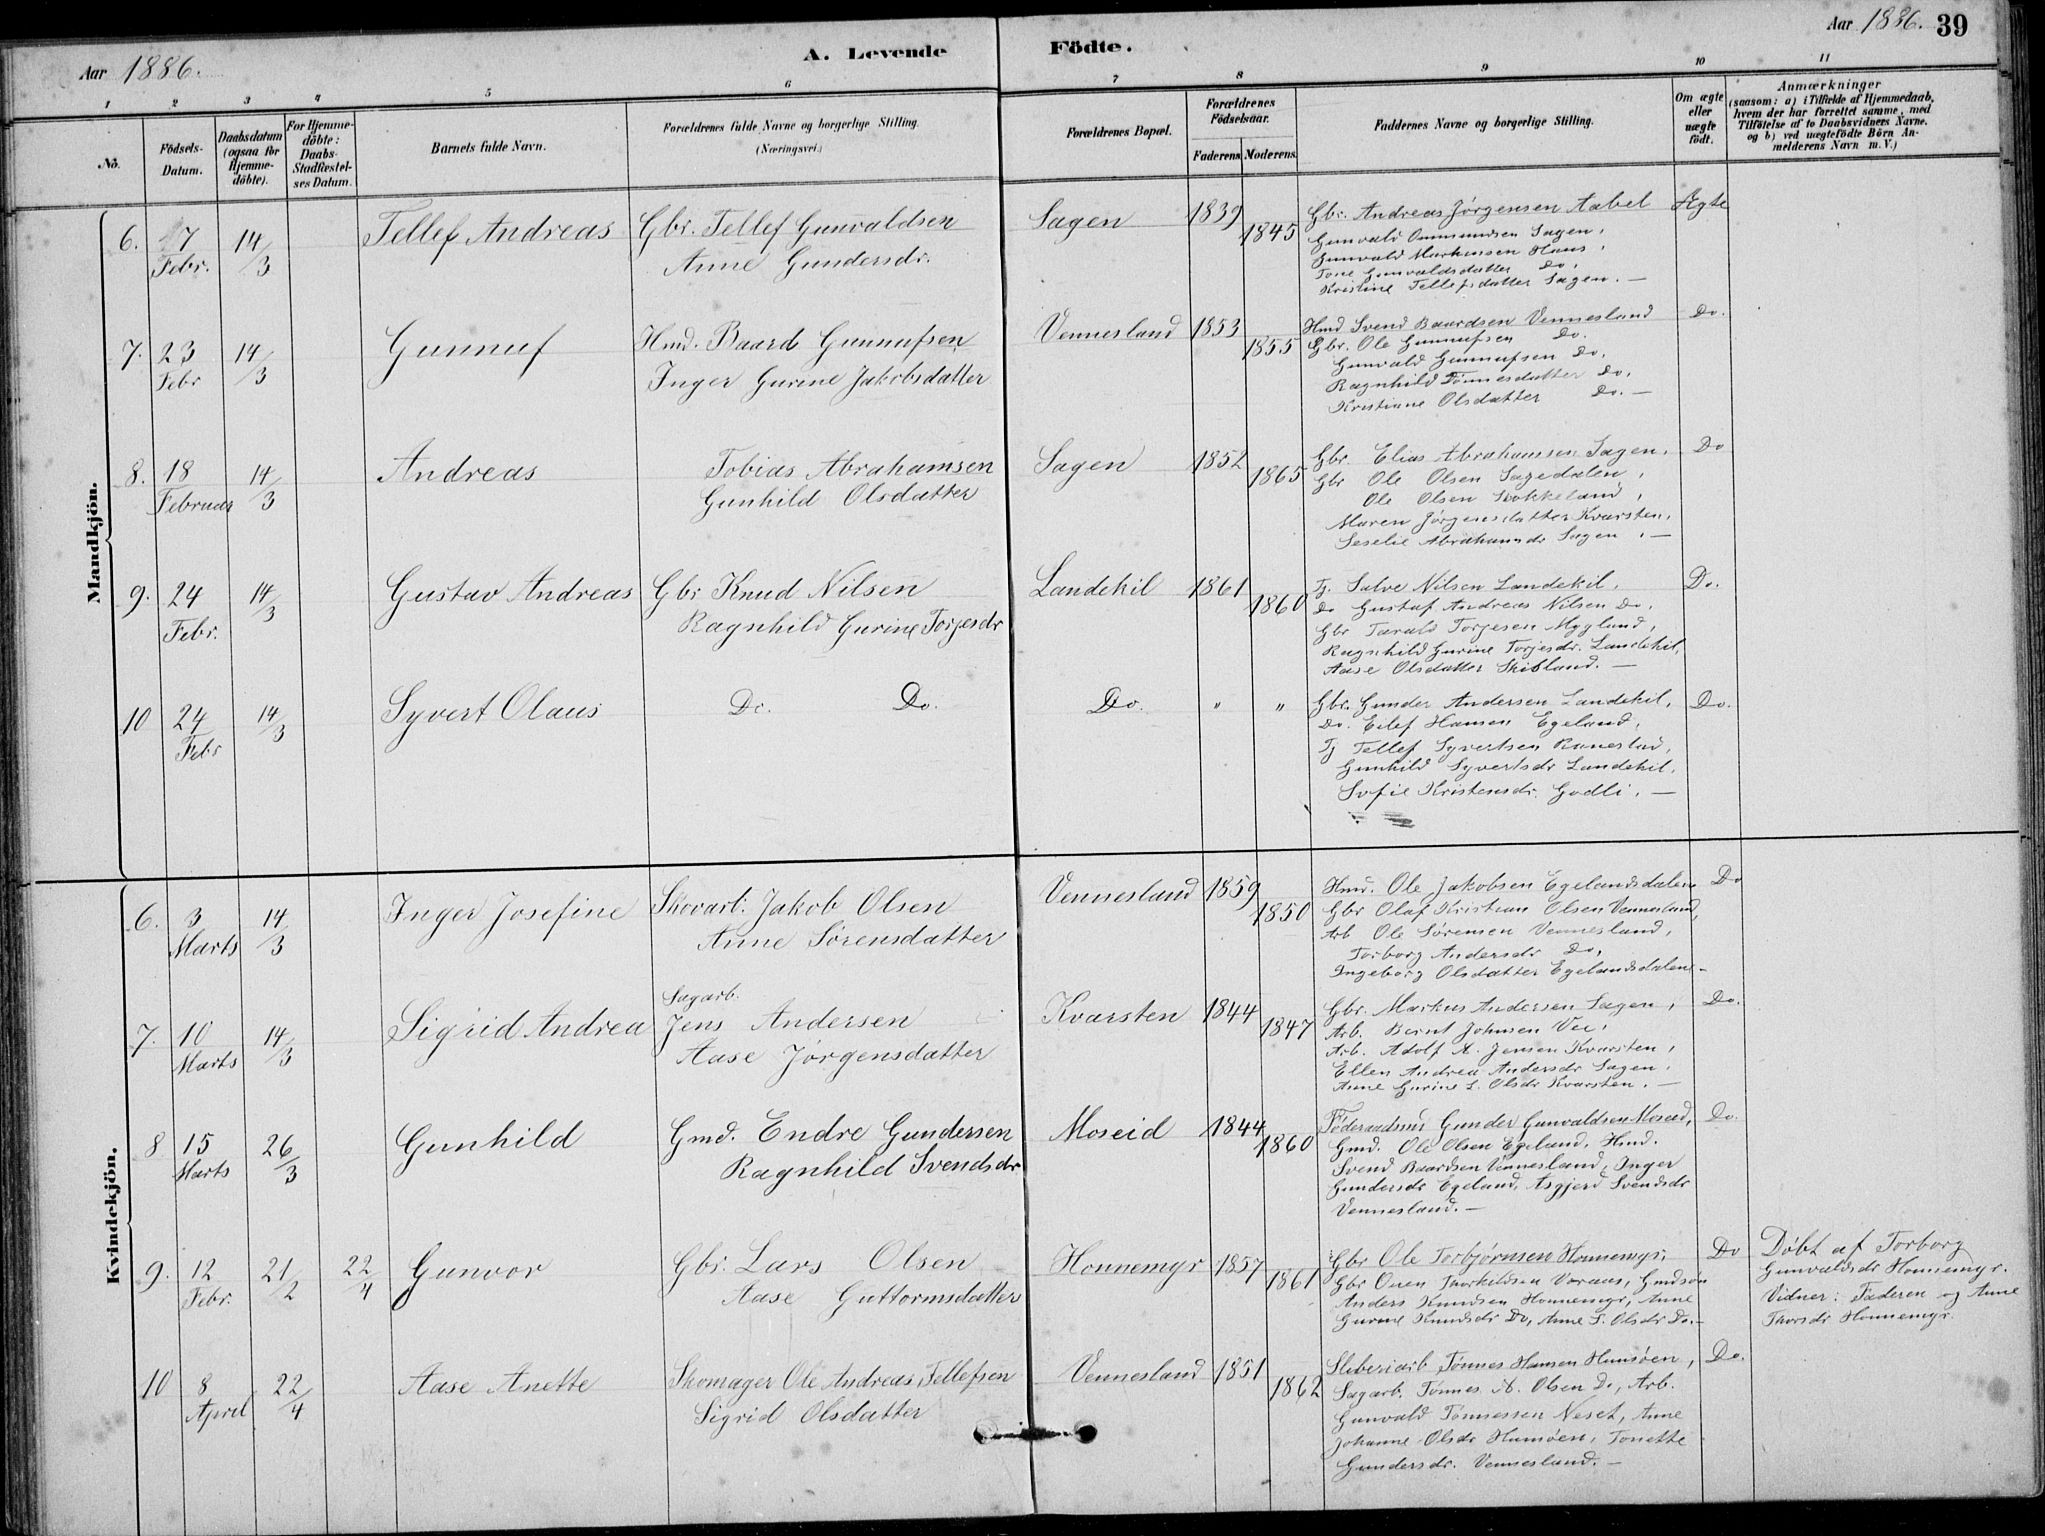 Aar 1886.
A. Levende
Födte.
Aar 1886. 39
1 2 3 4 5 6 7 8 9 10 11
Nö.
Födsels-Datum.
Daabsdatum (ogsaa for Hjemme-döbte).
For Hjemme-döbte: Daabs-Stadfæstel-ses Datum.
Barnets fulde Navn.
Forældrenes fulde Navne og borgerlige Stilling.
(Næringsvei.)
Forældrenes Bopæl.
Forældrenes Födselsaar.
Faderens Moderens
Faddernes Navne og borgerlige Stilling.
Om ægte eller uægte födt.
Anmærkninger
(saasom: a) i Tilfælde af Hjemmedaab,
hvem der har forrettet samme, med
Tilföielse af to Daabsvidners Navne.
og b) ved uægtefödte Börn An-
melderens Navn m. V.)
Mandkjön.
6. 17 Febr. 14/3 Tellef Andreas Gbr. Tellef Gunvaldsen
Anne Gundersdr.
Sagen 1839 1845
Gbr. Andreas Jørgensen Aabel Ægte
Gunvald Ommundsen Sagen,
Gunvald Markussen Haus,
Tone Gunvaldsdatter Do,
Kristine Tellefsdatter Sagen. —
7. 23 Febr 14/3 Gunnuf Hmd. Baard Gunnufsen
Inger Gurine Jakobsdatter
Vennesland 1853 1855
Hmd Svend Baardsen Vennesland Do.
Gbr. Ole Gunnufsen Do.
Gunvald Gunnufsen Do.
Ragnhild Tønnesdatter Do,
Kristiane Olsdatter Do. —
8. 18 Februar 14/3 Andreas Tobias Abrahamsen
Gunhild Olsdatter
Sagen 1852 1865
Gbr. Elias Abrahamsen Sagen, Do
Gbr Ole Olsen Sagedalen,
Ole Olsen Stokkeland,
Maren Jørgensdatter Kvarsten,
Seselie Abrahamsdr Sagen. —
9. 24 Febr. 14/3 Gustav Andreas Gbr Knud Nilsen
Ragnhild Gurine Torjesdr
Landekil 1861 1860
Tj. Salve Nilsen Landekil, Do.
Do Gustaf Andreas Nilsen Do.
Gbr Tarald Torjesen Mygland,
Ragnhild Gurine Torjesdr. Landekil,
Aase Olsdatter Skibland. —
10 24 Febr 14/3 Syvert Olaus Do. Do.
Do. " "
Gbr. Gunder Andersen Landekil, Do.
Do. Eilef Hansen Egeland,
Tj Tellef Syvertsen Ranestad,
Gunhild Syvertsdr Landekil,
Sofie Kristensdr. Godli. —
Kvindekjön.
6. 3 Marts 14/3 Inger Josefine Skovarb. Jakob Olsen
Anne Sørensdatter
Vennesland 1859 1850
Hmd. Ole Jakobsen Egelandsdalen Do
Gbr Olaf Kristian Olsen Vennesland,
Arb Ole Sørensen Vennesland,
Torborg Andersdr Do,
Ingeborg Olsdatter Egelandsdalen —
7. 10 Marts 14/3 Sigrid Andrea Sagarb.
Jens Andersen
Aase Jørgensdatter
Kvarsten 1844 1847
Gbr. Markus Andersen Sagen, Do.
Arb. Bernt Johnsen Vee,
Arb. Adolf A. Jensen Kvarsten,
Ellen Andrea Andersdr Sagen,
Anne Gurine S. Olsdr Kvarsten. —
8 15 Marts 26/3 Gunhild Gmd. Endre Gundersen
Ragnhild Svendsdr
Moseid 1844 1860
Föderaadsmd Gunder Gunvaldsen Moseid, Do.
Gmd. Ole Olsen Egeland, Hmd.
Svend Baardsen Vennesland, Inger
Gundersdr Egeland, Asgjerd Svendsdr
Vennesland. —
9. 12 Febr. 21/2 22/4 Gunvor Gbr. Lars Olsen
Aase Guttormsdatter
Honnemyr 1857 1861
Gbr Ole Torbjørnsen Honnemyr, Do
Gbr Ouen Thorkildsen Voraas, Gmdsøn
Anders Knudsen Honnemyr, Anne
Gurine Knudsdr Do, Anne S. Olsdr Do. —
Døbt af Torborg
Gunvaldsdr Honnemyr.
Vidner: Faderen og Anne
Thorsdr Honnemyr.
10 8 April 22/4 Aase Anette Skomager Ole Andreas Tellefsen
Sigrid Olsdatter
Vennesland 1851 1862
Sliberiarb Tønnes Hansen Hunsøen, Do.
Sagarb. Tønnes A. Olsen Do, Arb.
Gunvald Tønnessen Neset, Anne
Johanne Olsdr Hunsøen, Tonette
Gundersdr. Vennesland. —